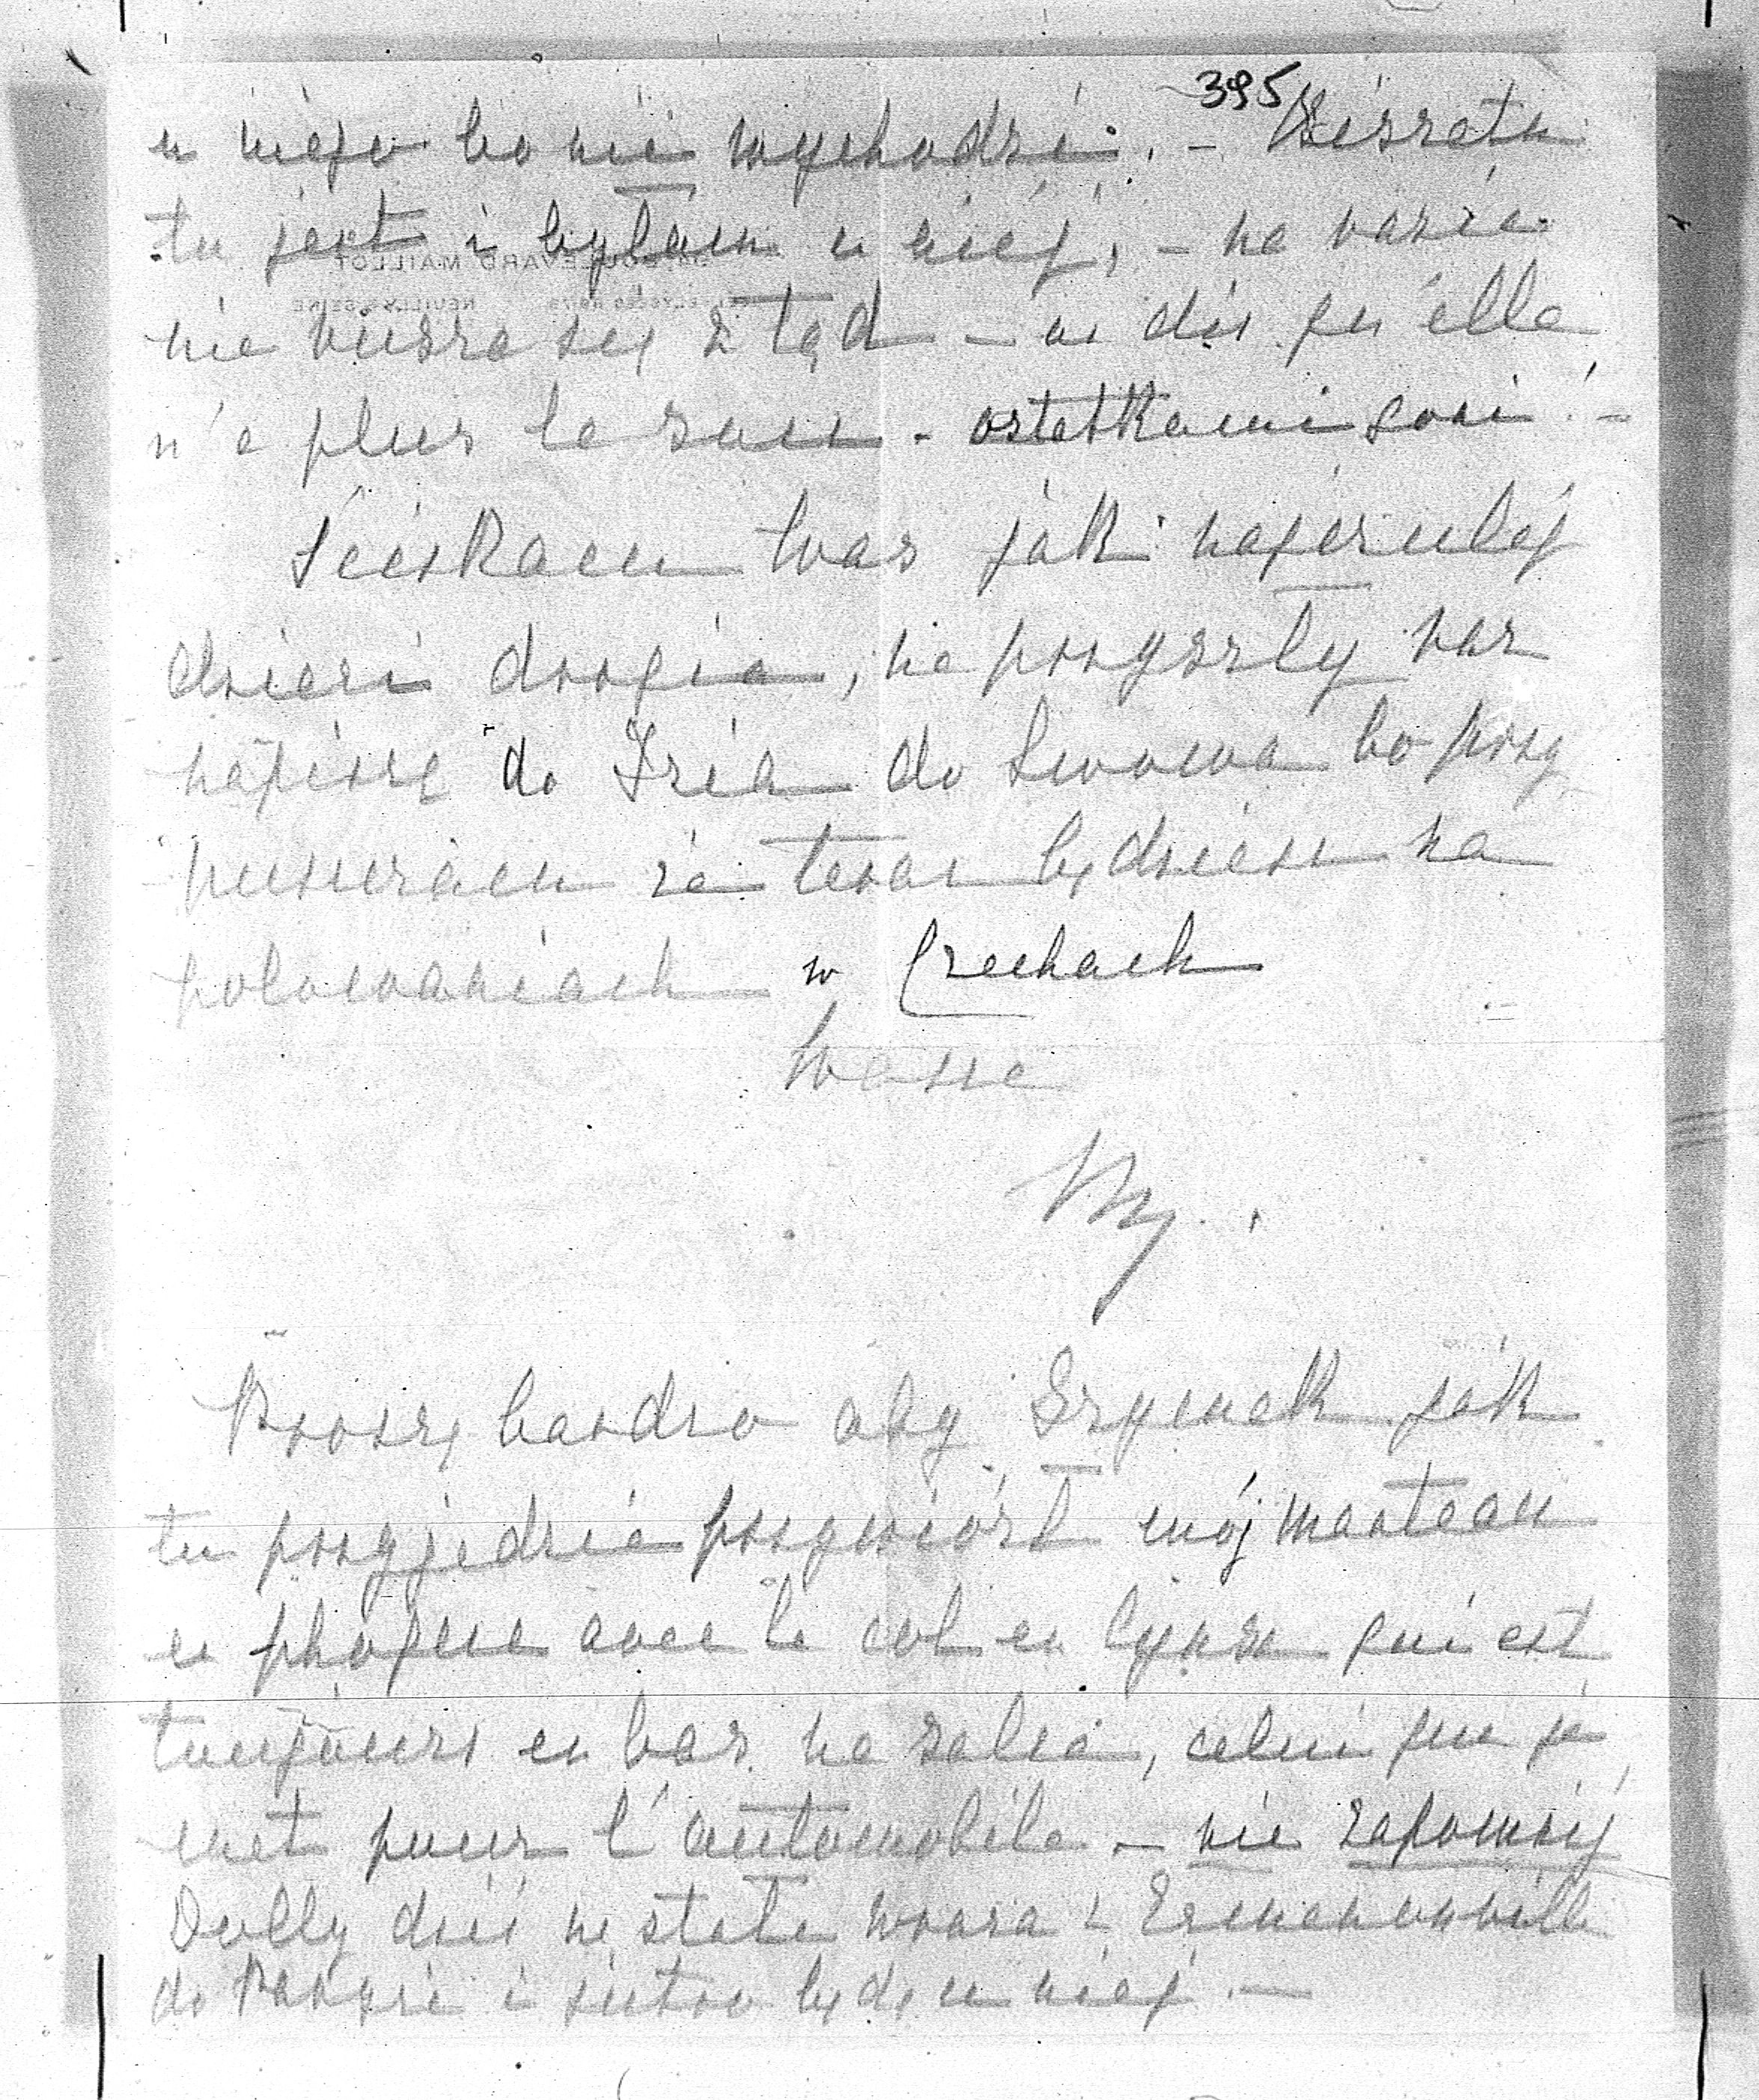 395
u niego bo nie wychodzi. - Biszeta
tu jest i byłam u niej, - na razie
nie rusza się z tąd - on dit qu'elle
n'a plus le sou - ostatkami goni! -
Sciskam Was jak najczulej
dzieci drogie, na przyszły raz
napiszę do Izia do Lwowa bo przy
puszczam że teraz będziesz na
polowaniach w Czechach
Wasza
My.
Proszę bardzo aby Szymek jak
tu przyjedzie przywiózł mój manteau
en phoque avec le col en lynx qui est
toujours en bas na salce, celui que je
met pour l'automobile - nie zapomnij
Dolly dziś na stałe wraca z Ermenonville
do Paryża i jutro będę u niej. -
BOULEVARD MAILLOT
NEUILLY S/SEINE